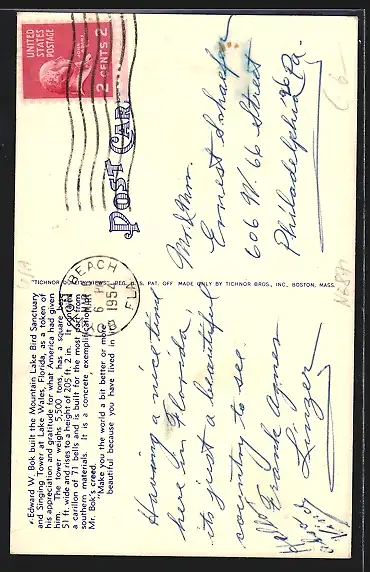 Edward W. Bok built the Mountain Lake Bird Sanctuary
and Singing Tower at Lake Wales, Florida, as a token of
his appreciation and gratitude for what America had given
him. The tower weighs 5,500 tons, has a square base
51 ft. wide and rises to a height of 205 ft. 2 in. It contains
a carillon of 71 bells and is built for the most part from
southern materials. It is a concrete exemplification of
Mr. Bok's creed.
"Make you the world a bit better or more
beautiful because you have lived in it."
Having a nice time
here in Florida,
its just a beautiful
country to see
Frank Agnes
Linger
"TICHNOR QUALITY VIEWS," REG. U. S. PAT. OFF. MADE ONLY BY TICHNOR BROS., INC., BOSTON, MASS.
POST CARD
UNITED
STATES
POSTAGE
2 CENTS 2
BEACH
6 PM
1954
FLA
Mr & Mrs.
Ernest Schaefer
606 W. 66 Street
Philadelphia 26 Pa.